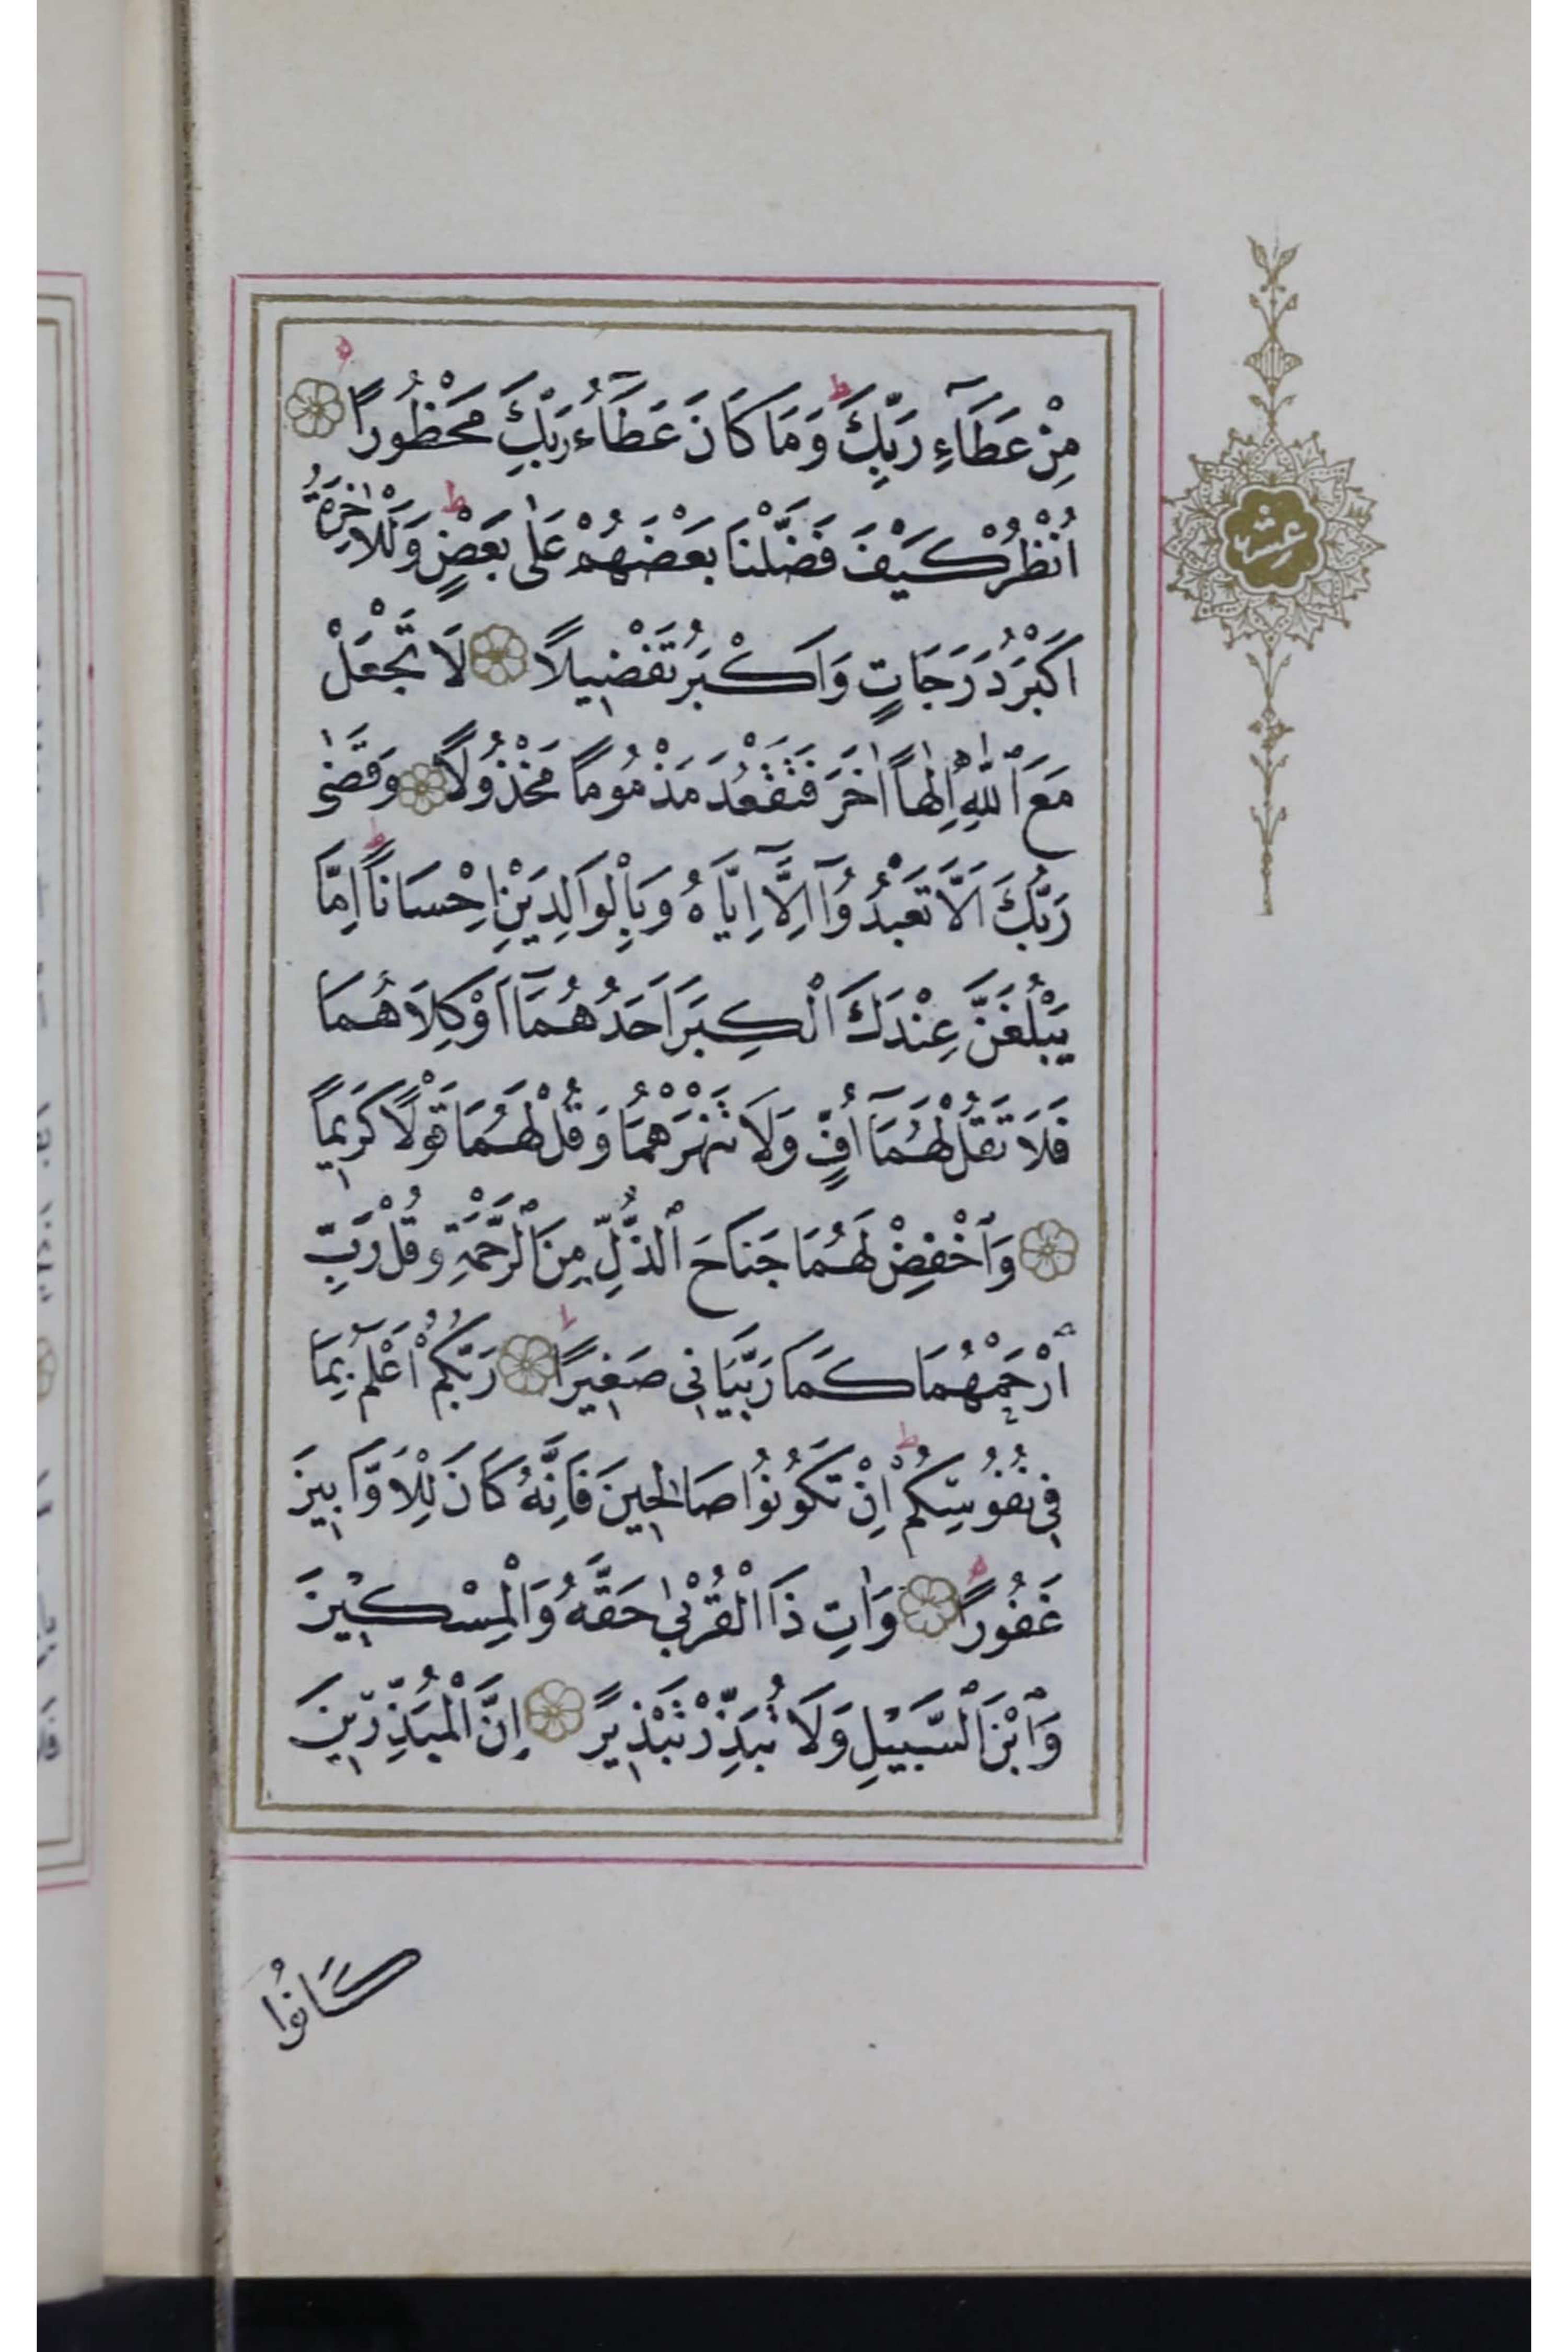 مِنْ عَطَآءِ رَبِّكَ ط وَمَا كَانَ عَطَآءُ رَبِّكَ مَحْظُورًا
اُنْظُرْ كَيْفَ فَضَّلْنَا بَعْضَهُمْ عَلٰى بَعْضٍ ط وَلَلْاٰخِرَةُ
اَكْبَرُ دَرَجَاتٍ وَاَكْبَرُ تَفْضِيلًا لَا تَجْعَلْ
مَعَ ٱللّٰهِ اِلٰهًا اٰخَرَ فَتَقْعُدَ مَذْمُومًا مَخْذُولًا وَقَضٰى
رَبُّكَ اَلَّا تَعْبُدُوٓا اِلَّآ اِيَّاهُ وَبِالْوَالِدَيْنِ اِحْسَانًا ط اِمَّا
يَبْلُغَنَّ عِنْدَكَ الْكِبَرَ اَحَدُهُمَآ اَوْ كِلَاهُمَا
فَلَا تَقُلْ لَهُمَآ اُفٍّ وَلَا تَنْهَرْهُمَا وَقُلْ لَهُمَا قَوْلًا كَرِيمًا
وَٱخْفِضْ لَهُمَا جَنَاحَ ٱلذُّلِّ مِنَ ٱلرَّحْمَةِ وَقُلْ رَبِّ
ٱرْحَمْهُمَا كَمَا رَبَّيَانِى صَغِيرًا ط رَبُّكُمْ اَعْلَمُ بِمَا
فِى نُفُوسِكُمْ ط اِنْ تَكُونُوا صَالِحِينَ فَاِنَّهُ كَانَ لِلْاَوَّابِينَ
غَفُورًا وَاٰتِ ذَا الْقُرْبٰى حَقَّهُ وَالْمِسْكِينَ
وَٱبْنَ ٱلسَّبِيلِ وَلَا تُبَذِّرْ تَبْذِيرً اِنَّ الْمُبَذِّرِينَ
عشر
كَانُوا